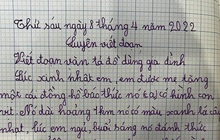 Thứ sáu ngày 8 tháng 4 năm 2022
Luyện viết đoạn
Viết đoạn văn tả đồ dùng gia đình
Lúc xanh nhất em, em được mẹ tặng
một cái đồng hồ bác thức nó tạ có hình con
vịt. Nó dài khoảng 1 km nó có màu xanh lá cây
nhạt, lúc em ngủ, buổi sáng nó đánh thức